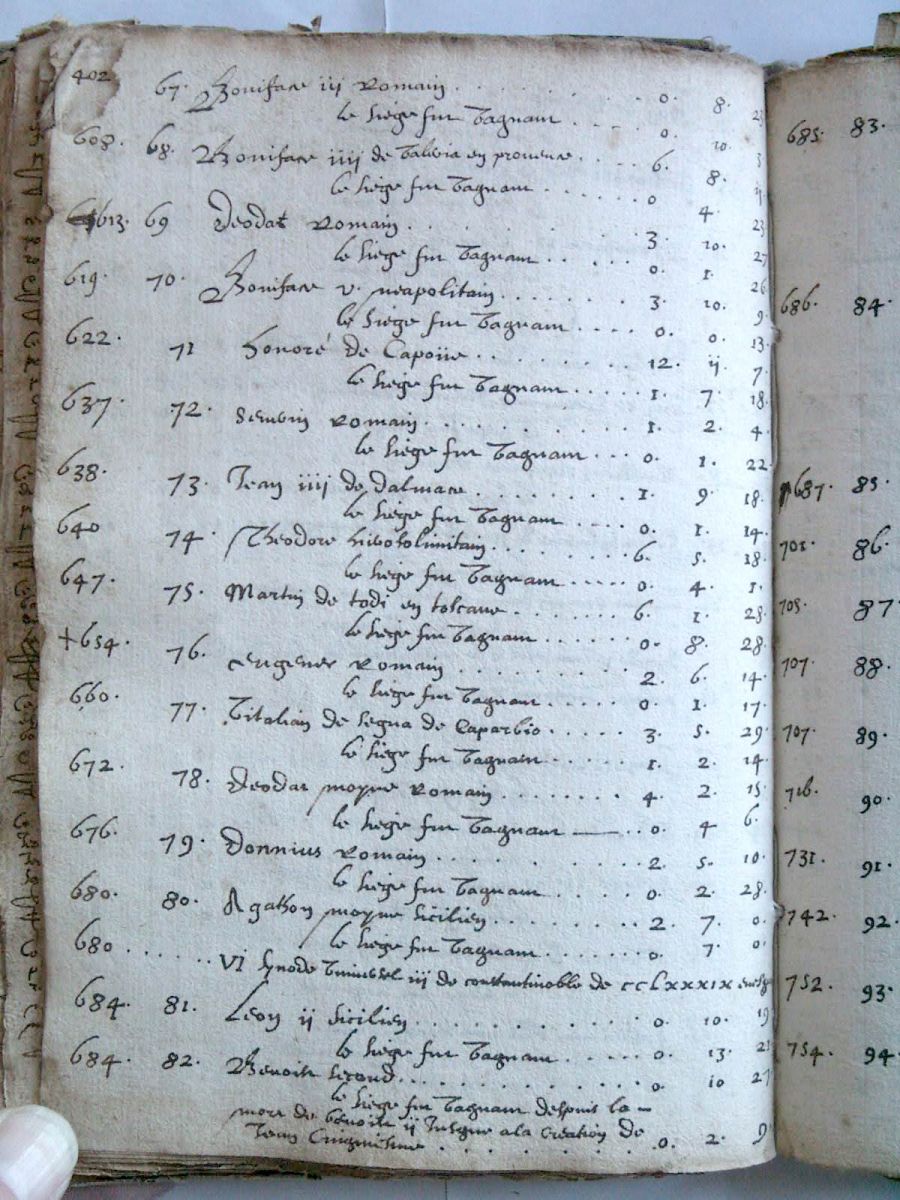 402. 67. Boniface iii Romain . . . . . . . 0. 8. 23
le siege fut vaquant . . . . 0. 10.
608. 68. Boniface iiii de valeria en provence . . . . 6. 8. 
le siege fut vaquant . . . . 0. 4. 23
613. 69 Deodat Romain . . . . . . . 3. 10. 27
le siege fut vaquant . . . . 0. 1. 26
619 70. Boniface v. neapolitain . . . . . 3. 10. 9.
le siege fut vaquant . . . . 0. 0. 13.
622. 71 honoré de Capoüe . . . . . . 12. ij. 7.
le siege fut vaquant . . . . 1. 7. 18.
637. 72. Severin Romain . . . . . . . 1. 2. 4.
le siege fut vaquant . . . 0. 1. 22.
638. 73. Jean iiii de dalmace . . . . . . . 1. 9. 18.
le siege fut vaquant . . . . 0. 1. 14.
640 74. Theodore hierosolimitain . . . . . . . 6. 5. 18.
le siege fut vaquant . . . . . 0. 4. 1.
647. 75. Martin de todi en toscane . . . . . . 6. 1. 28.
le siege fut vaquant . . . . . 0. 8. 28
+654. 76. eugenes Romain . . . . . . . . 2. 6. 14.
le siege fut vaquant . . . . 0. 1. 17.
660. 77. vitalian de segna de Caparbio . . . . . 3. 5. 29.
le siege fut vaquant . . . . 1. 2. 14
672. 78. Deodat moyne Romain . . . . . . . 4. 2. 15
le siege fut vaquant —— . . 0. 4 6.
676. 79. Donnius Romain . . . . . . . 2. 5. 10.
le siege fut vaquant . . . . 0. 2. 28.
680. 80. Agathon moyne sicilien . . . . . . 2. 7. 0.
le siege fut vaquant . . . . 0. 7. 0.
680 . . . . . . VI synode iii de constantinoble de ccLxxxix
684. 81. Leon ij sicilien . . . . . . . . 0. 10. 19
le siege fut vaquant . . . . 0. 13. 21
684. 82. Benoist second . . . . . . . . . 0. 10 27
le siege fut vaquant despuis la
mort de benoist ij Jusque a la creation de
Jean Cinquiesme . . . . . . . 0. 2. 9
685. 83.
686. 84.
687. 85.
701. 86.
705. 87.
707. 88.
707. 89.
716. 90.
731. 91.
742. 92.
752. 93.
754. 94.